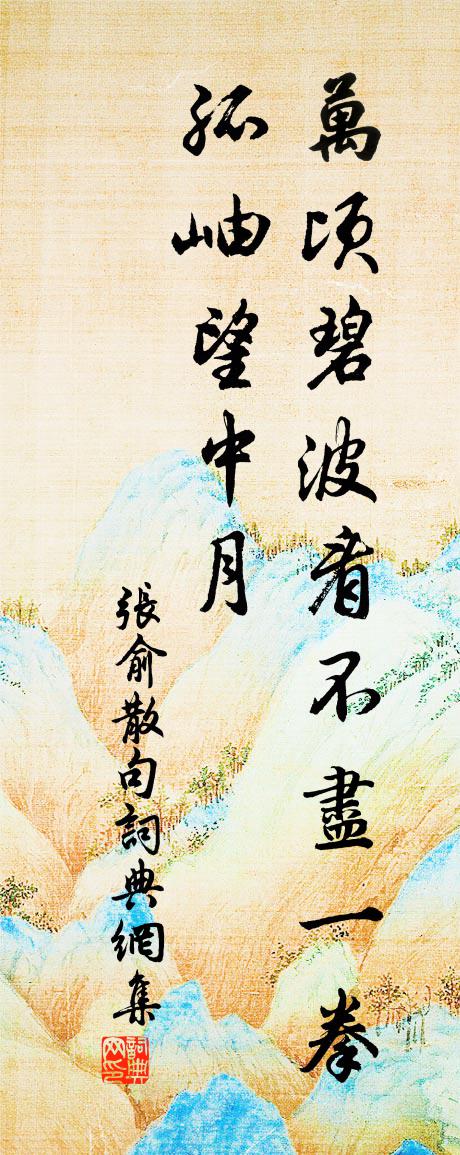 萬頃碧波看不盡一拳
孤岫望中月
張俞散句詞典網集
詞典
网印